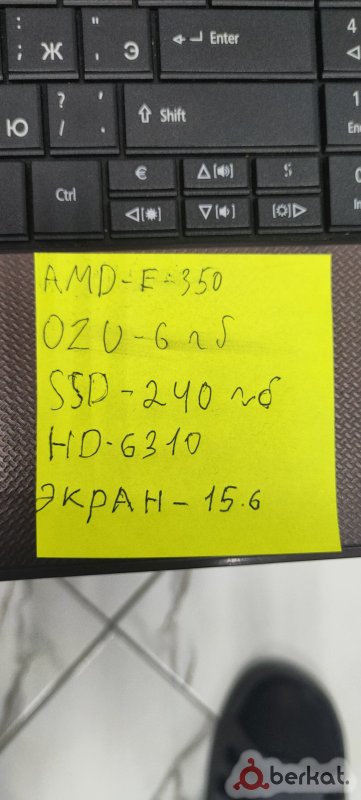 : Ж " Э Enter 4
; ,
Ю ? / . Shift 1
Ctrl € 0
AMD-E-350
OZU-6 гб
SSD-240 гб
HD-6310
ЭКРАН-15.6
berkat.